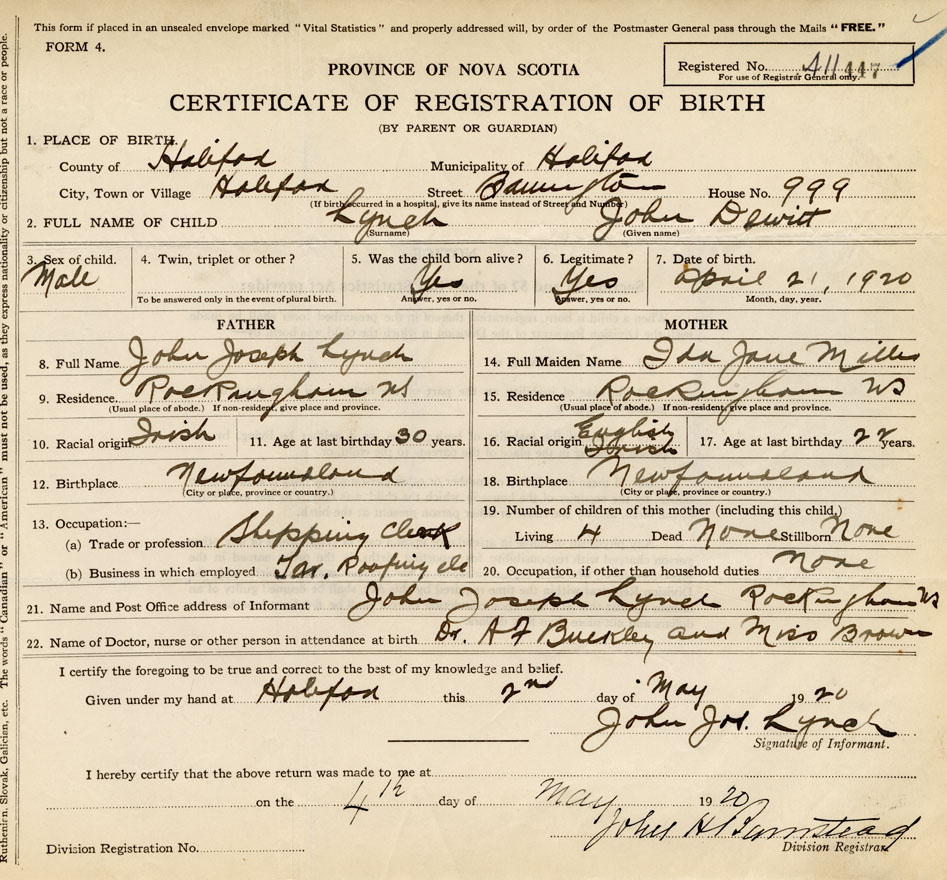 This form if placed in an unsealed envelope marked "Vital Statistics" and properly addressed will, by order of the Postmaster General pass through the Mails "FREE."
FORM 4.
Registered No. 411 447
For use of Registrar General only.
PROVINCE OF NOVA SCOTIA
CERTIFICATE OF REGISTRATION OF BIRTH
(BY PARENT OR GUARDIAN)
1. PLACE OF BIRTH.
County of Halifax Municipality of Halifax
City, Town or Village Halifax Street Barrington House No. 999
(If birth occurred in a hospital, give its name instead of Street and Number)
2. FULL NAME OF CHILD Lynch John Dewitt
(Surname) (Given name)
3. Sex of child. 4. Twin, triplet or other? 5. Was the child born alive? 6. Legitimate? 7. Date of birth.
Male Yes Yes April 21, 1920
To be answered only in the event of plural birth. Answer, yes or no. Answer, yes or no. Month, day, year.
FATHER
8. Full Name John Joseph Lynch
9. Residence Rockingham NS
(Usual place of abode.) If non-resident, give place and province.
10. Racial origin Irish 11. Age at last birthday 30 years.
12. Birthplace Newfoundland
(City or place, province or country.)
13. Occupation:—
(a) Trade or profession Shipping Clerk
(b) Business in which employed Tar, Roofing etc
MOTHER
14. Full Maiden Name Ida Jane Millis
15. Residence Rockingham NS
(Usual place of abode.) If non-resident, give place and province.
16. Racial origin English Irish 17. Age at last birthday 22 years.
18. Birthplace Newfoundland
(City or place, province or country.)
19. Number of children of this mother (including this child,)
Living 4 Dead None Stillborn None
20. Occupation, if other than household duties None
21. Name and Post Office address of Informant John Joseph Lynch Rockingham NS
22. Name of Doctor, nurse or other person in attendance at birth Dr. A F Buckley and Miss Brown
I certify the foregoing to be true and correct to the best of my knowledge and belief.
Given under my hand at Halifax this 2nd day of May 1920
John Jos. Lynch
Signature of Informant.
I hereby certify that the above return was made to me at
on the 4th day of May 1920
John H Barnstead
Division Registrar.
Division Registration No.
Ruthenien, Slovak, Galician, etc. The words "Canadian" or "American" must not be used, as they express nationality or citizenship but not a race or people.